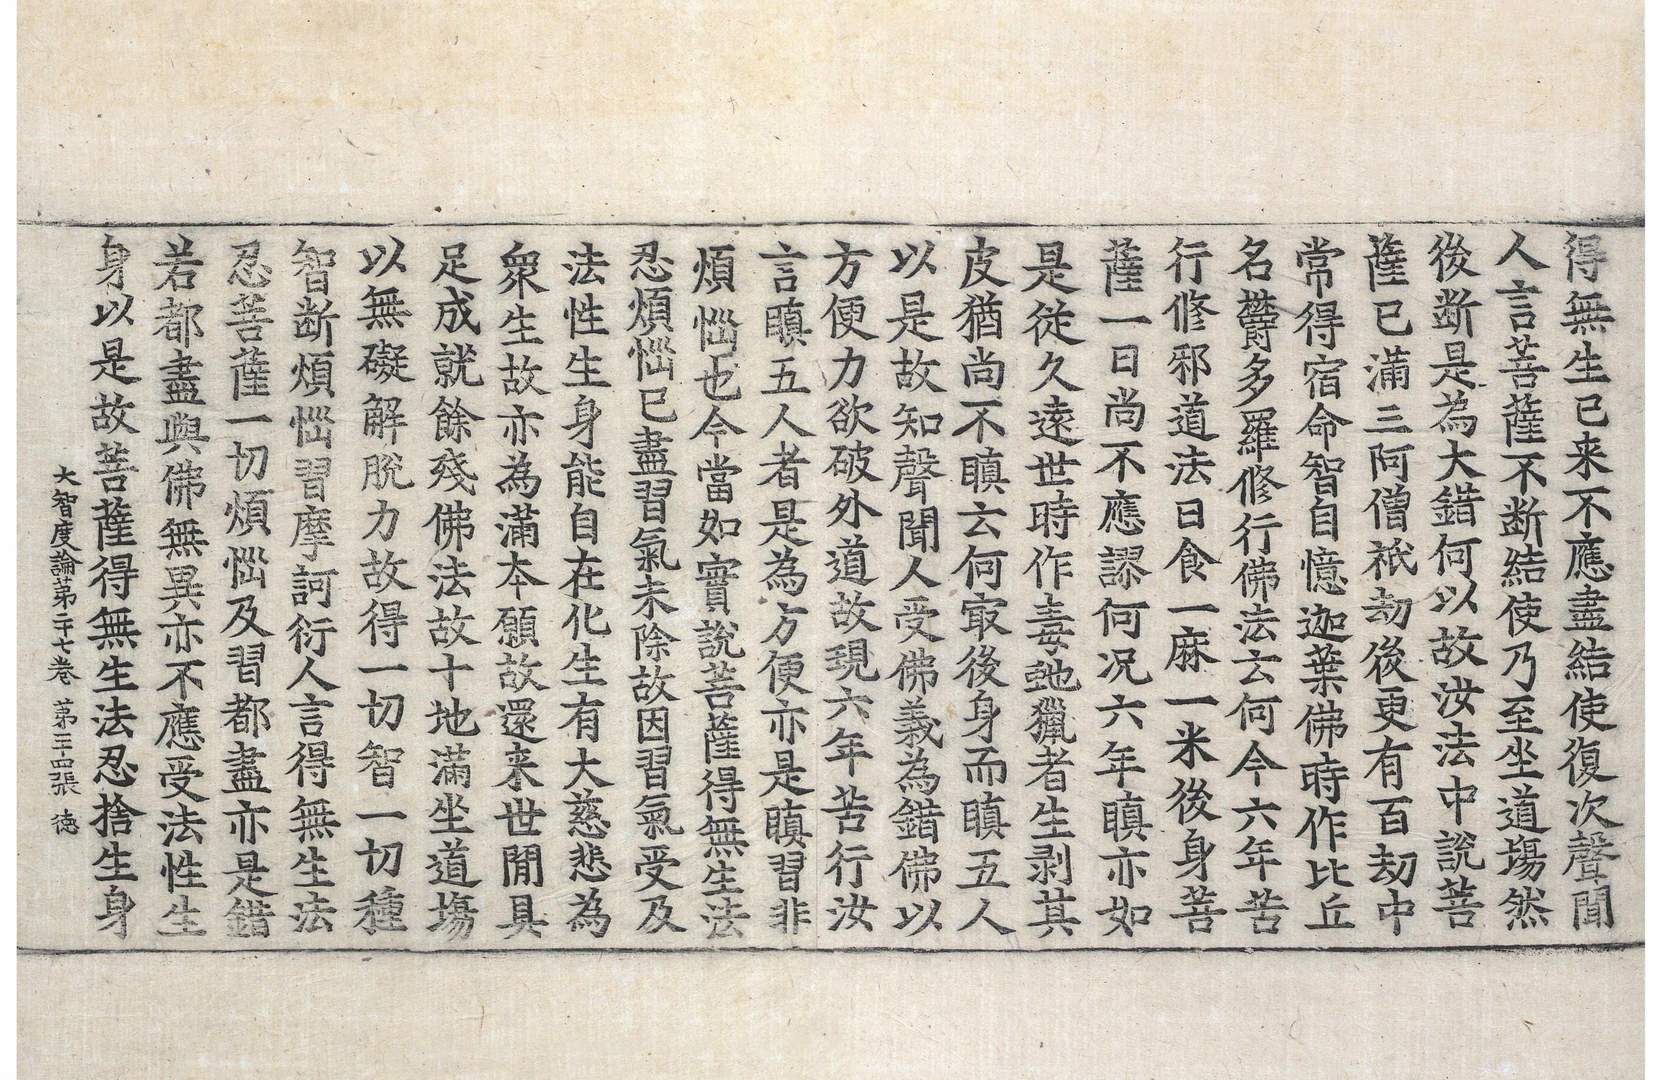 得無生已来不應盡結使復次聲聞
人言菩薩不断結使乃至坐道塲然
後断是為大錯何以故汝法中說菩
薩已滿三阿僧祇劫後更有百劫中
常得宿命智自憶迦葉佛時作比丘
名欝多羅修行佛法云何今六年苦
行修邪道法日食一麻一米後身菩
薩一日尚不應謬何况六年瞋亦如
是從久遠世時作毒虵獵者生剥其
皮猶尚不瞋云何㝡後身而瞋五人
以是故知聲聞人受佛義為錯佛以
方便力欲破外道故現六年苦行汝
言瞋五人者是為方便亦是瞋習非
煩惱也今當如實說菩薩得無生法
忍煩惱已盡習氣未除故因習氣受及
法性生身能自在化生有大慈悲為
衆生故亦為滿本願故還来世閒具
足成就餘殘佛法故十地滿坐道塲
以無礙解脫力故得一切智一切種
智断煩惱習摩訶衍人言得無生法
忍菩薩一切煩惱及習都盡亦是錯
若都盡與佛無異亦不應受法性生
身以是故菩薩得無生法忍捨生身
大智度論第二十七卷 第三四張 徳